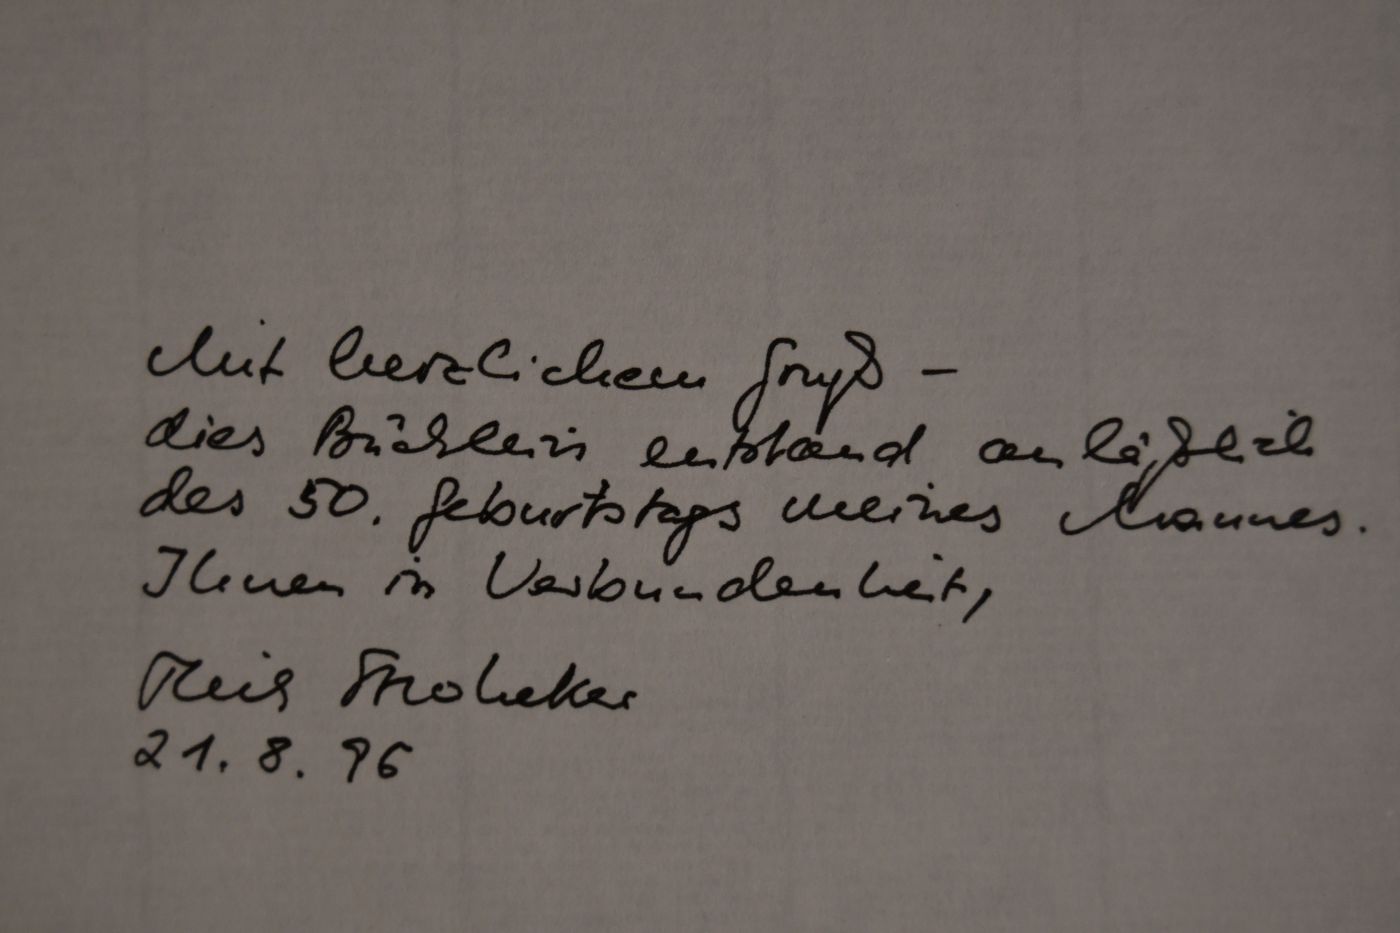 Mit herzlichem Gruß –
dies Büchlein entstand anläßlich
des 50. Geburtstags meines Mannes.
Ihnen in Verbundenheit,
Stroheker
21. 8. 96